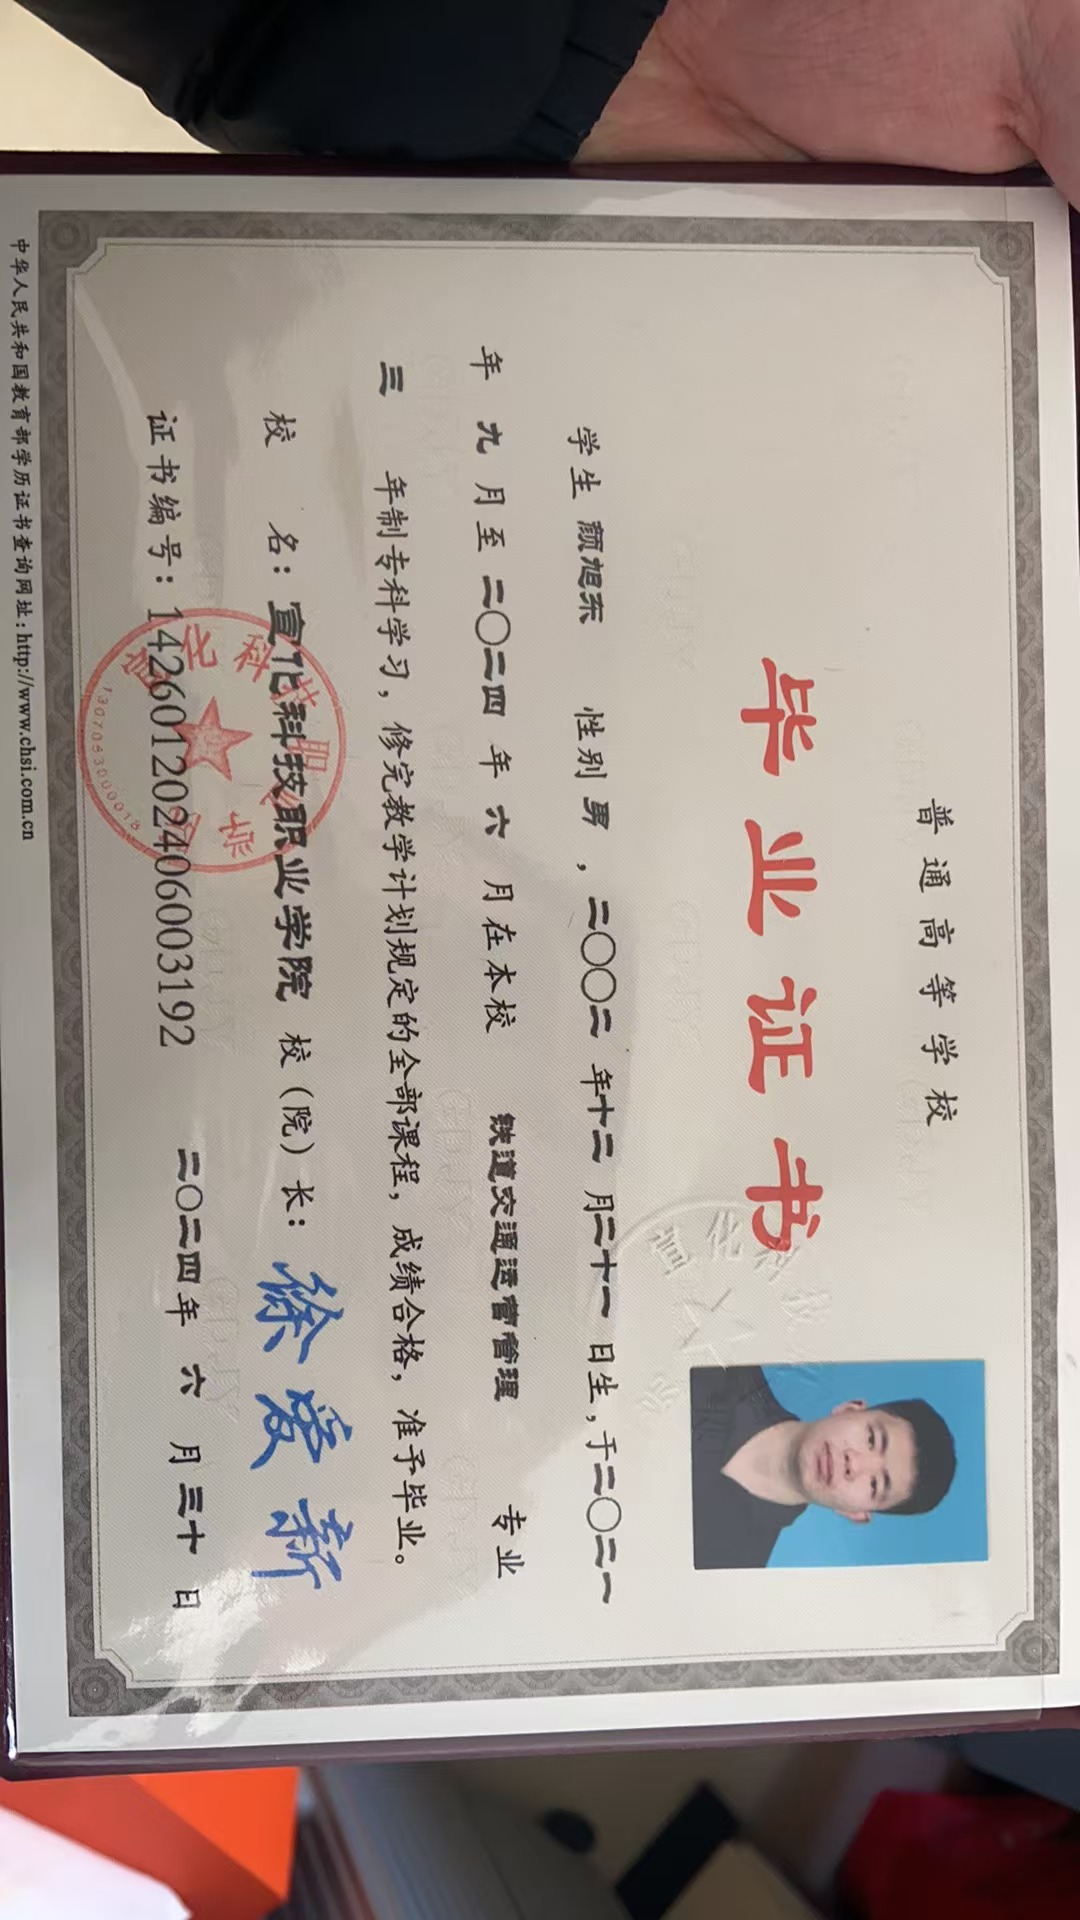 普通高等学校
毕业证书
学生 颜旭东 性别 男，二〇〇二年十二月二十一日生，于二〇二一
年 九 月至 二〇二四 年 六 月在本校 铁道交通运营管理 专业
三 年制专科学习，修完教学计划规定的全部课程，成绩合格，准予毕业。
校 名：宣化科技职业学院 校（院）长：徐爱新
证书编号：142601202406003192 二〇二四年 六 月 三十 日
中华人民共和国教育部学历证书查询网址：http://www.chsi.com.cn